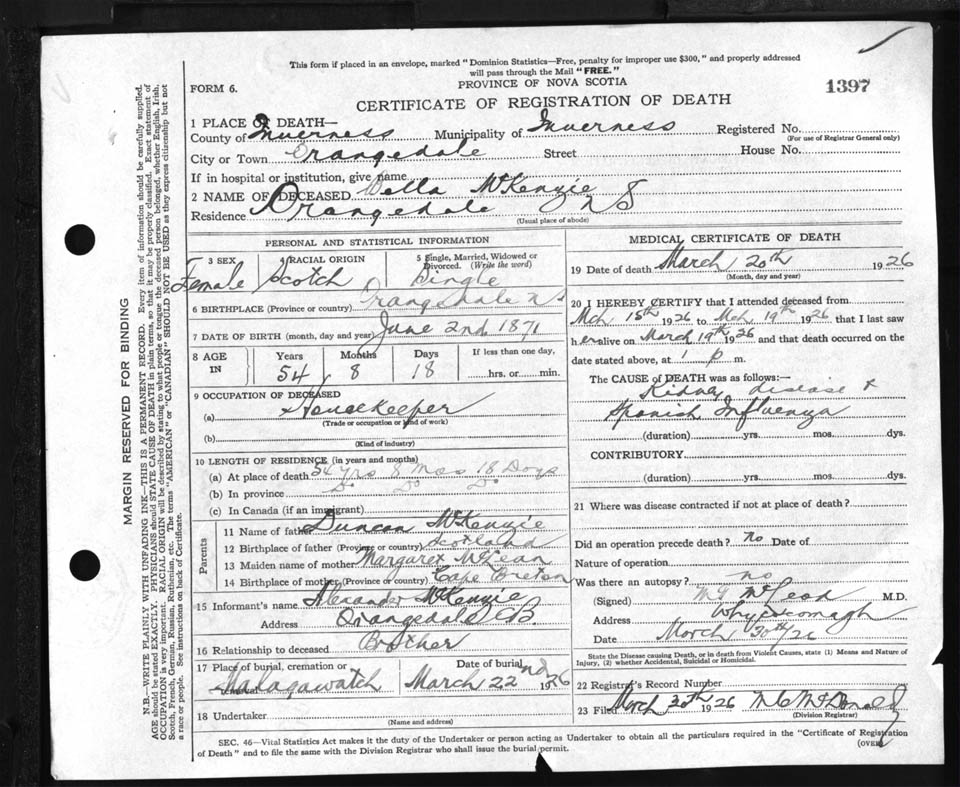 This form if placed in an envelope, marked "Dominion Statistics—Free, penalty for improper use $300," and properly addressed
will pass through the Mail "FREE."
FORM 6.
PROVINCE OF NOVA SCOTIA
1397
CERTIFICATE OF REGISTRATION OF DEATH
1 PLACE OF DEATH—
County of Inverness Municipality of Inverness Registered No.
(For use of Registrar General only)
City or Town Orangedale Street House No.
If in hospital or institution, give name
2 NAME OF DECEASED Bella McKenzie
Residence Orangedale N S
(Usual place of abode)
PERSONAL AND STATISTICAL INFORMATION
3 SEX Female 4 RACIAL ORIGIN Scotch 5 Single, Married, Widowed or Divorced. (Write the word) Single
6 BIRTHPLACE (Province or country) Orangedale N S
7 DATE OF BIRTH (month, day and year) June 2nd 1871
8 AGE IN Years Months Days If less than one day,
54 8 18 hrs. or min.
9 OCCUPATION OF DECEASED
(a) Housekeeper
(Trade or occupation or kind of work)
(b)
(Kind of industry)
10 LENGTH OF RESIDENCE (in years and months)
(a) At place of death 54 yrs 8 Mos 18 Days
(b) In province Do Do Do
(c) In Canada (if an immigrant)
Parents
11 Name of father Duncan McKenzie
12 Birthplace of father (Province or country) Scotland
13 Maiden name of mother Margaret McLean
14 Birthplace of mother (Province or country) Cape Breton
15 Informant's name Alexander McKenzie
Address Orangedale CB.
16 Relationship to deceased Brother
17 Place of burial, cremation or removal Malagawatch Date of burial March 22nd 1926
18 Undertaker
(Name and address)
MEDICAL CERTIFICATE OF DEATH
19 Date of death March 20th 1926
(Month, day and year)
20 I HEREBY CERTIFY that I attended deceased from
Mch 15th 1926 to Mch 19th 1926 that I last saw
her alive on March 19th 1926 and that death occurred on the
date stated above, at 1 p m.
The CAUSE of DEATH was as follows:—
Kidney disease &
Spanish Influenza
(duration) yrs. mos. dys.
CONTRIBUTORY
(duration) yrs. mos. dys.
21 Where was disease contracted if not at place of death?
Did an operation precede death? no Date of
Nature of operation
Was there an autopsy? no
(Signed) McLeod M.D.
Address Whycocomagh
Date March 30th/26
State the Disease causing Death, or in death from Violent Causes, state (1) Means and Nature of
Injury, (2) whether Accidental, Suicidal or Homicidal.
22 Registrar's Record Number
23 Filed March 30th 1926 McDonald
(Division Registrar)
SEC. 46—Vital Statistics Act makes it the duty of the Undertaker or person acting as Undertaker to obtain all the particulars required in the "Certificate of Registration
of Death" and to file the same with the Division Registrar who shall issue the burial permit.
(OVER)
MARGIN RESERVED FOR BINDING
N.B.—WRITE PLAINLY WITH UNFADING INK—THIS IS A PERMANENT RECORD. Every item of information should be carefully supplied.
AGE should be stated EXACTLY. PHYSICIANS should STATE CAUSE OF DEATH in plain terms, so that it may be properly classified. Exact statement of
OCCUPATION is very important. RACIAL ORIGIN will be described by stating to what people or tongue the deceased person belonged, whether English, Irish,
Scotch, French, German, Russian, Ruthenian, etc. The terms "AMERICAN" or "CANADIAN" SHOULD NOT BE USED as they express citizenship but not
a race or people. See instructions on back of Certificate.